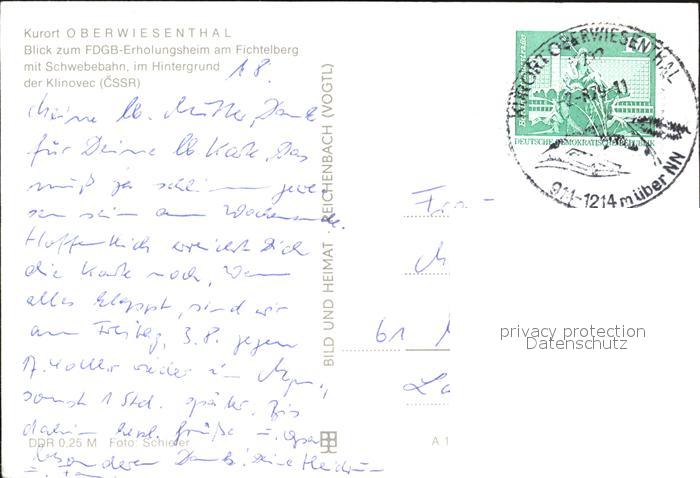 Kurort OBERWIESENTHAL
Blick zum FDGB-Erholungsheim am Fichtelberg
mit Schwebebahn, im Hintergrund
der Klinovec (ČSSR)
1.8.
Meine lb. Mutter, Dank
für Deine lb Karte. Das
muß ja schlimm gewe-
sen sein am Wochenende.
Hoffentlich erreicht Dich
die Karte noch. Wenn
alles klappt, sind wir
am Freitag, 3.8. gegen
17. wieder in
sonst 1 Std. später. Bis
dahin herzl. Grüße u.
besonderen Dank! Deine
u. Fam.
DDR 0,25 M Foto: Schiefer
BILD UND HEIMAT REICHENBACH (VOGTL)
A 1
Frau
61
DEUTSCHE DEMOKRATISCHE REPUBLIK
KURORT OBERWIESENTHAL
914-1214 m über NN
privacy protection
Datenschutz